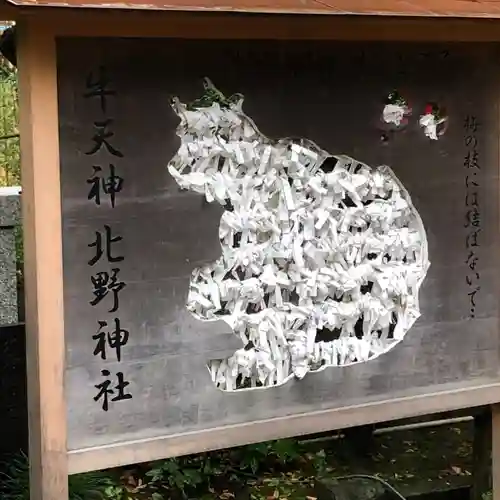 梅の枝には結ばないで…
牛天神北野神社